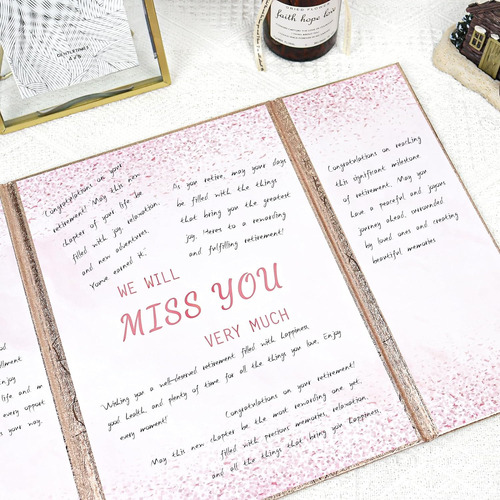 GENTLE STREET
4" x 6"
DRIED FLOWER
faith hope love
Congratulations on your
retirement! May this new
chapter of your life be
filled with joy, relaxation,
and new adventures.
Youve earned it.
As you retire, may your days
be filled with the things
that bring you the greatest
joy. Heres to a rewarding
and fulfilling retirement!
Congratulations on reaching
this significant milestone
of retirement. May you
have a peaceful and joyous
journey ahead, surrounded
by loved ones and creating
beautiful memories
WE WILL
MISS YOU
VERY MUCH
Wishing you a well-deserved retirement filled with happiness,
good health, and plenty of time for all the things you love. Enjoy
every moment!
Congratulations on your retirement!
May this new chapter be the most rewarding one yet,
filled with precious memories, relaxation,
and all the things that bring you happiness
life and
every opport
your way.